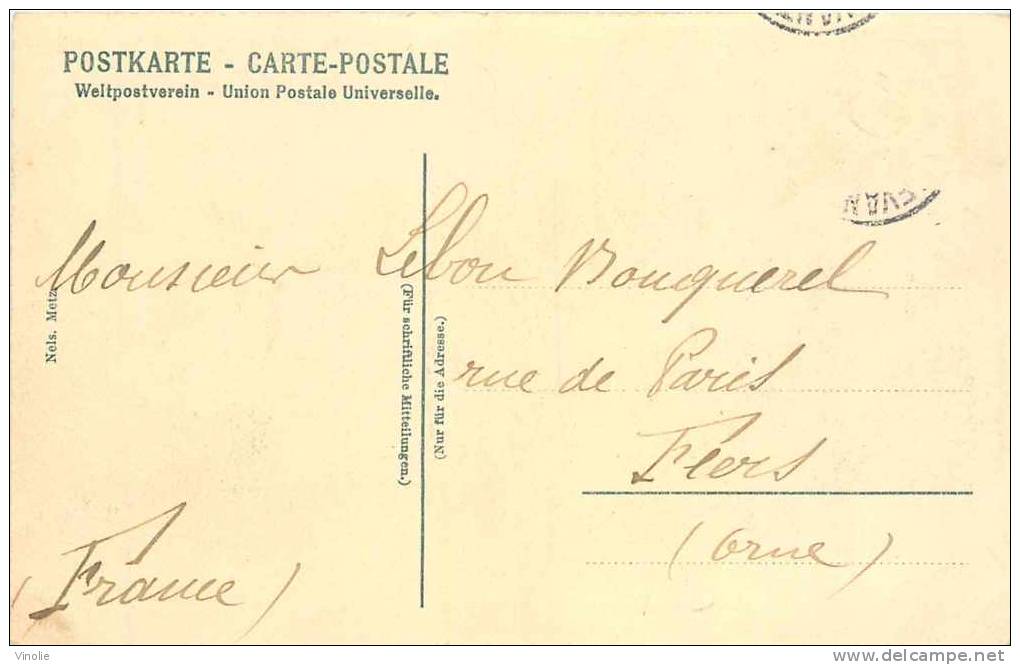 POSTKARTE - CARTE-POSTALE
Weltpostverein - Union Postale Universelle.
Monsieur Lebon Bouquerel
rue de Paris
Flers
(Orne)
(France)
Nels. Metz
(Für schriftliche Mitteilungen.)
(Nur für die Adresse.)
Vinolie
delcampe.net